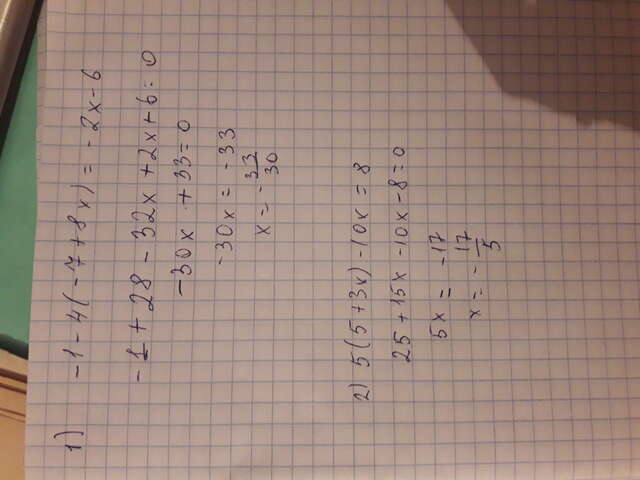 1) -1-4(-7+8x) = -2x-6
-1+28-32x+2x+6=0
-30x+33=0
-30x = -33
x = -33/30
2) 5(5+3x)-10x = 8
25+15x-10x-8=0
5x = -17
x = -17/5